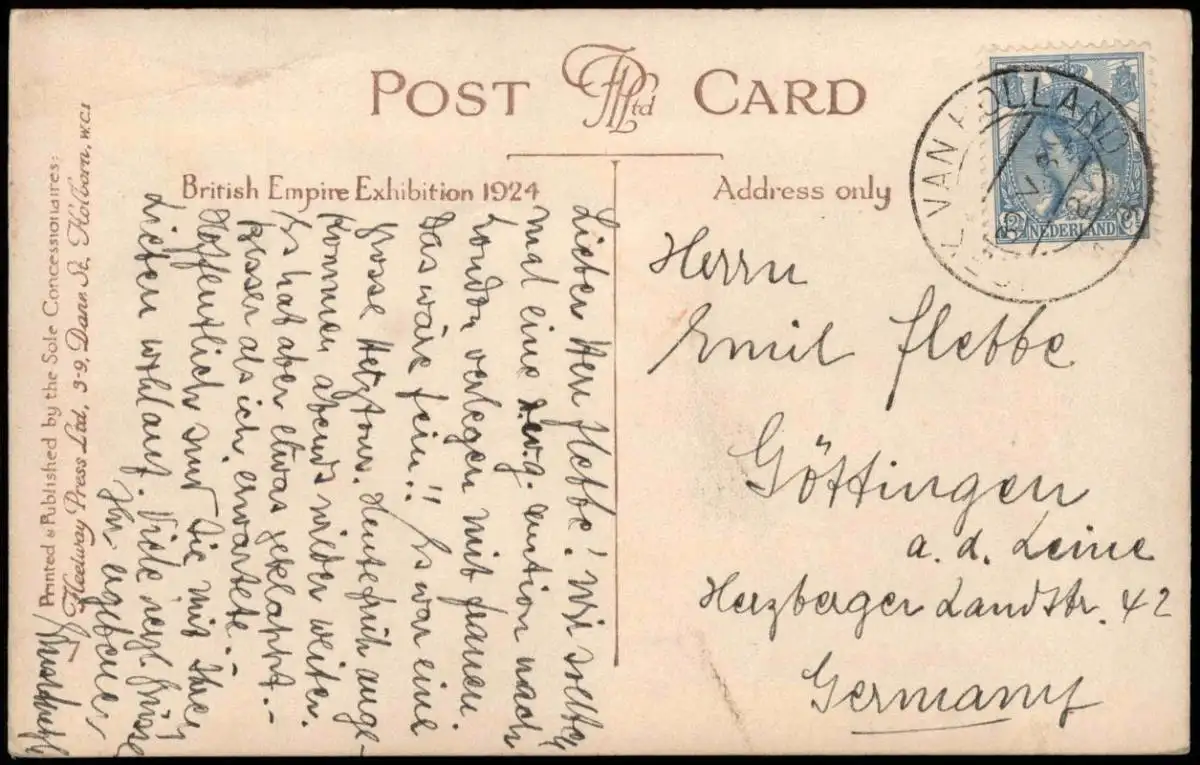 POST CARD
FPLtd
British Empire Exhibition 1924
Address only
Printed & Published by the Sole Concessionaires:
Fleetway Press Ltd, 3-9, Dane St. Holborn, W.C.1
Lieber Herr Flebbe! Wir sollten
mal eine auction nach
London verlegen mit Frauen.
Das wäre fein!! Es war eine
grosse Hetztour. Heute früh ange-
kommen abends wieder weiter.
Es hat aber etwas geklappt. -
Besser als ich erwartete. -
Hoffentlich sind Sie mit Ihren
Lieben wohlauf. Viele Grüsse
Ihr ergebener,
Herrn
Emil Flebbe
Göttingen
a. d. Leine
Herzberger Landstr. 42
Germany
VAN HOLLAND
NEDERLAND